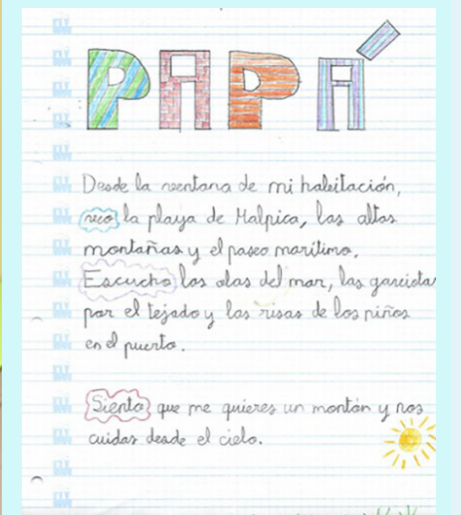 PAPÁ
Desde la ventana de mi habitación,
veo la playa de Malpica, las altas
montañas y el paseo marítimo.
Escucho las olas del mar, las gaviotas
por el tejado y las risas de los niños
en el puerto.
Siento que me quieres un montón y nos
cuidas desde el cielo.